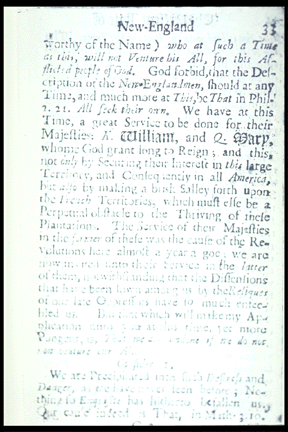 New-England 33
worthy of the Name) who at such a Time
at this, will not Venture his All, for this Af-
flicted people of God. God forbid, that the Des-
cription of the New-Englandmen, should at any
Time, and much more at This, be That in Phil.
2. 21. All seek their own. We have at this
Time, a great Service to be done for their
Majesties K. William, and Q. Mary,
whome God grant long to Reign; and this,
not only by Securing their Interest in this large
Territory, and Consequently in all America,
but also by making a brisk Salley forth upon
the French Territories, which must else be a
Perpetual obstacle to the Thriving of these
Plantations. The Service of their Majesties
in the former of these was the cause of the Re-
volutions here almost a year a goe; we are
now into their Service in the latter
of them, the Dissensions
that have been sown among us by the Reliques
of our late have so much enfee-
bled us. But that which will make my Ap-
plication unto you at this time, yet more
Pungent, is, if we do not
We are Precipitated into such Distress and
Danger, as never before; No-
thing so Exquisite has hitherto befallen us.
Our case indeed is That, in Matth.